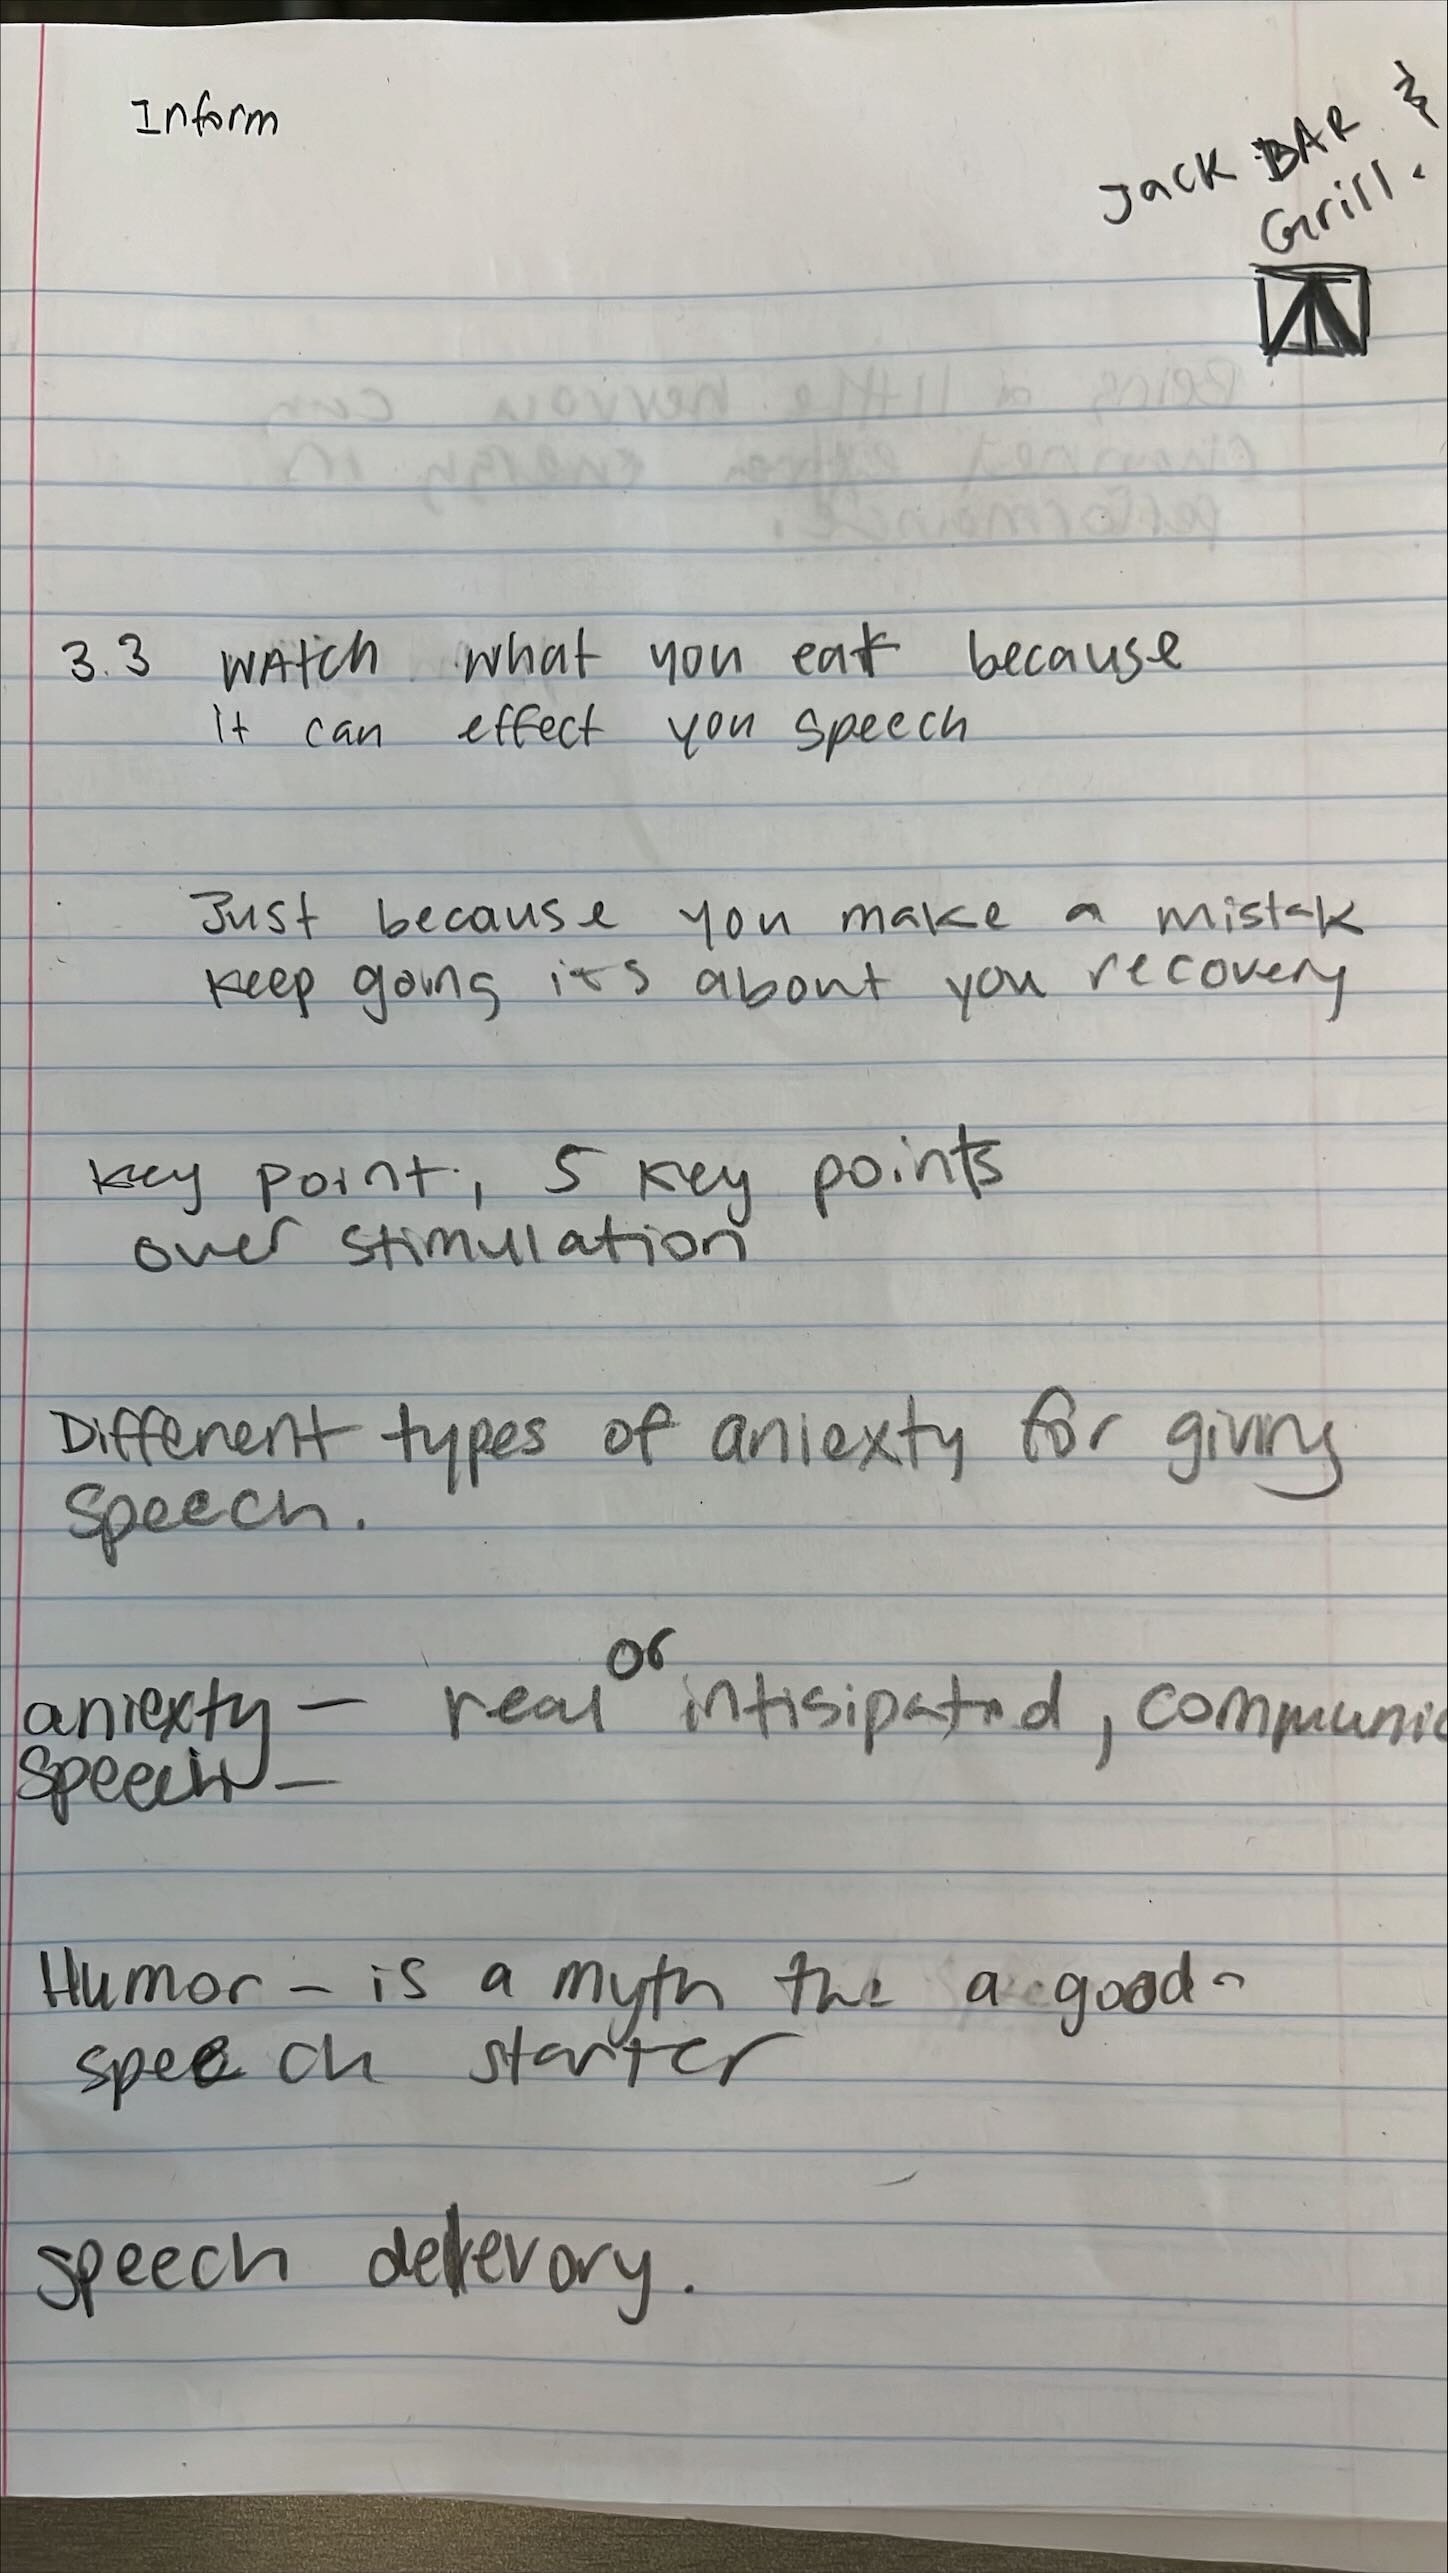 Inform
Jack BAR &
Grill.
3.3 WATch what you eat because
it can effect you speech
Just because you make a mistak
keep going it's about you recovery
key point, 5 key points
over stimulation
Different types of aniexty for giving
speech.
or
aniexty – real intisipatnd, communic
speech –
Humor – is a myth the a good -
speech starter
speech delevory.